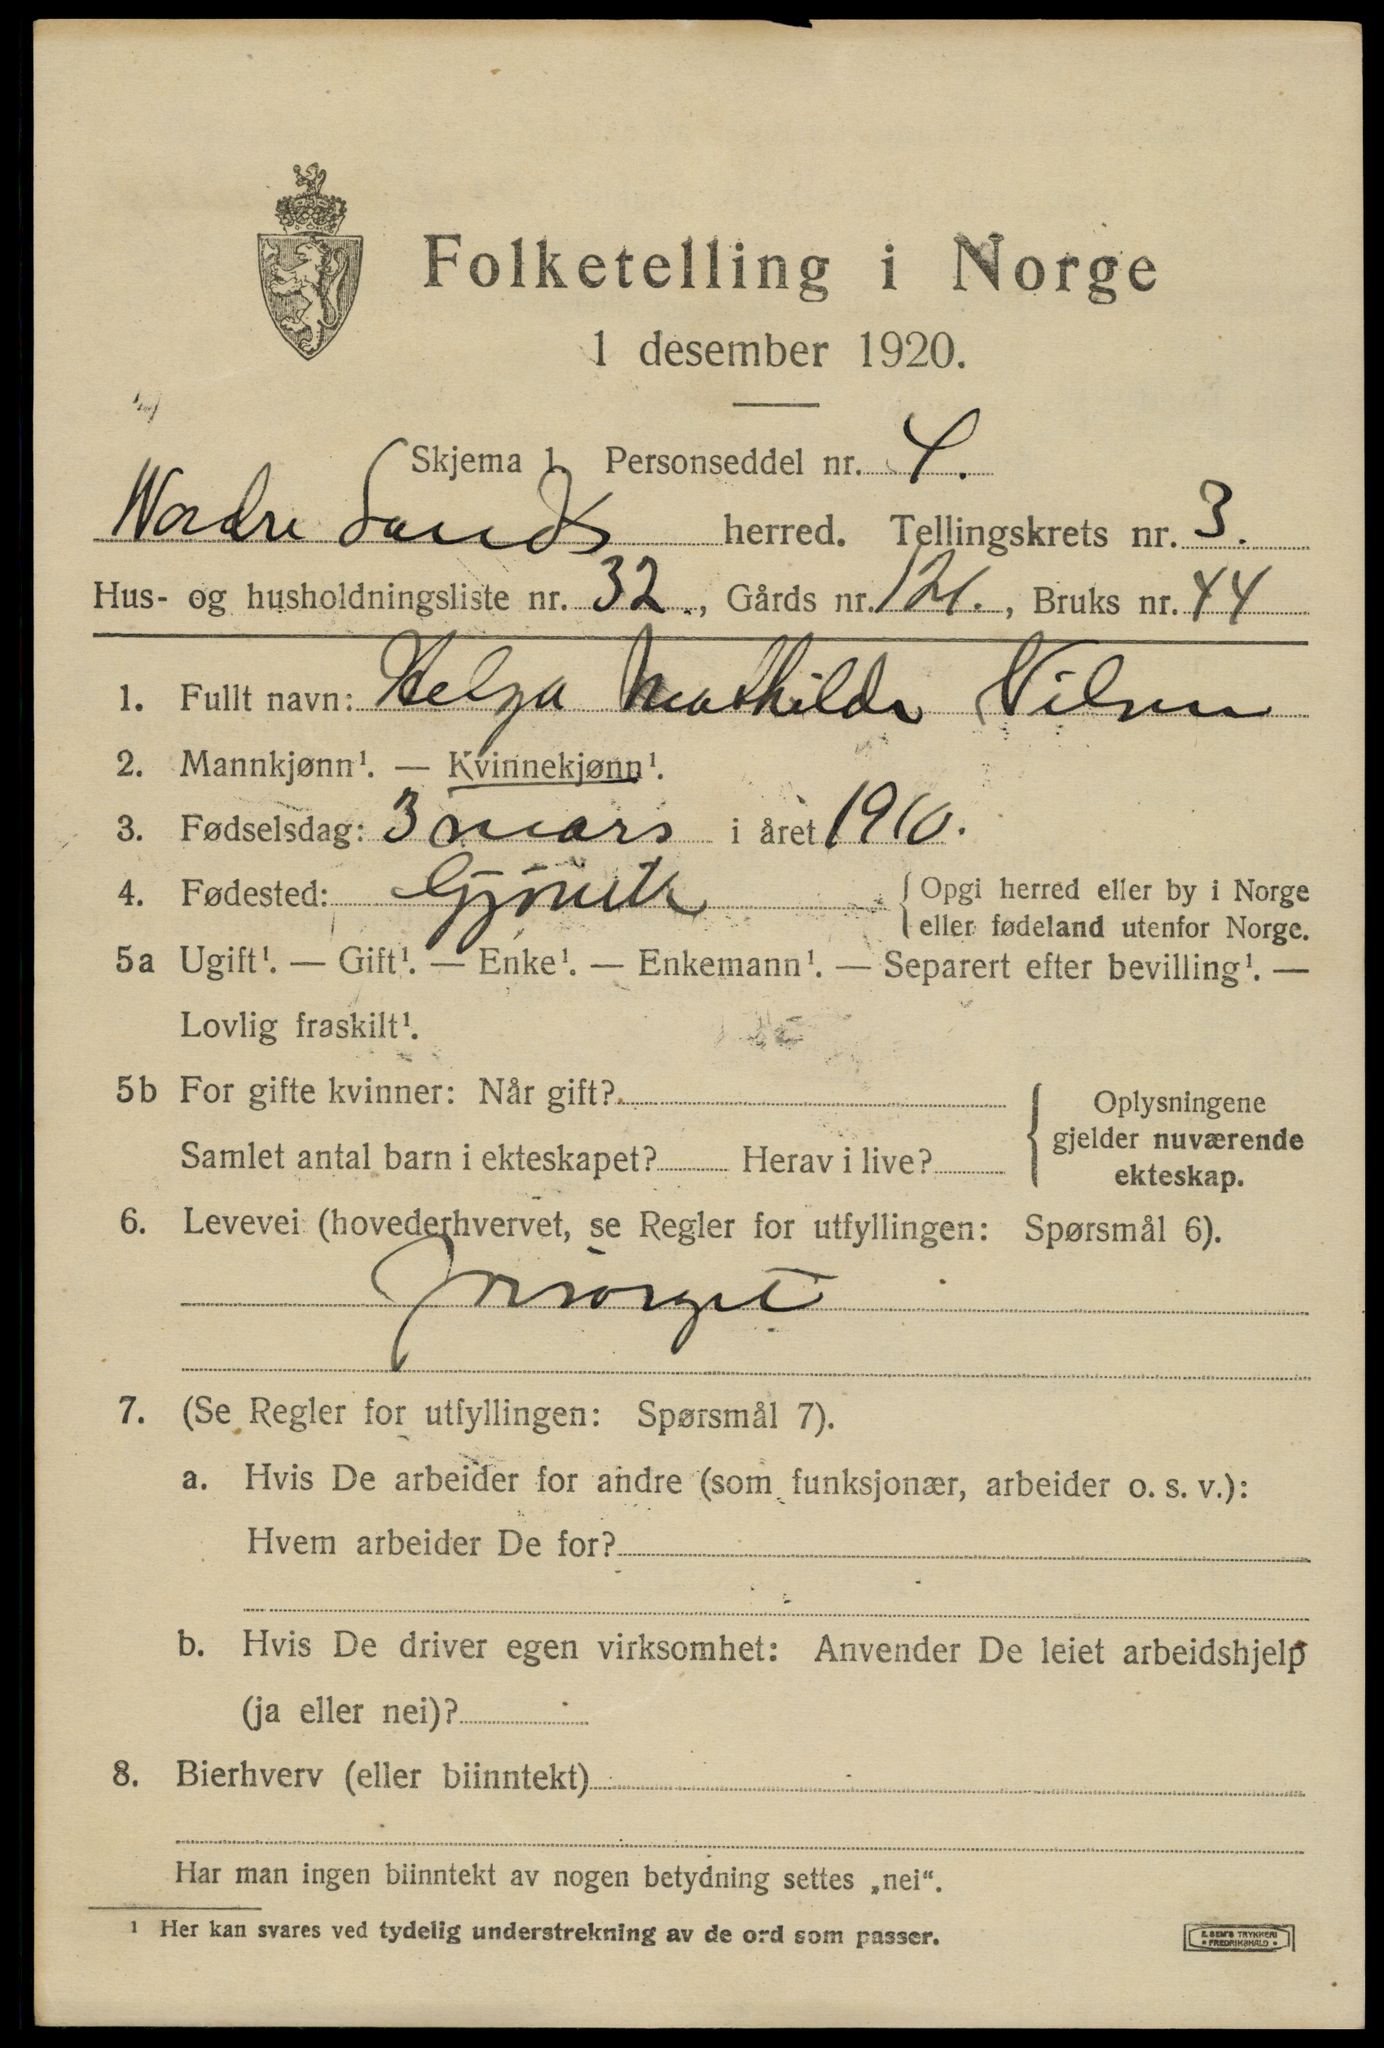 Folketelling i Norge
1 desember 1920.
Skjema 1 Personseddel nr. 4.
Nordre Lands herred. Tellingskrets nr. 3.
Hus- og husholdningsliste nr. 32., Gårds nr. 121., Bruks nr. 44
1. Fullt navn: Helga Mathilde Nilsen
2. Mannkjønn¹. — Kvinnekjønn¹.
3. Fødselsdag: 3 mars i året 1910.
4. Fødested: Gjøvik { Opgi herred eller by i Norge
eller fødeland utenfor Norge.
5a Ugift¹. — Gift¹. — Enke¹. — Enkemann¹. — Separert efter bevilling¹. —
Lovlig fraskilt¹.
5b For gifte kvinner: Når gift? { Oplysningene
gjelder nuværende
Samlet antal barn i ekteskapet? Herav i live?
ekteskap.
6. Levevei (hovederhvervet, se Regler for utfyllingen: Spørsmål 6).
Forsørget
7. (Se Regler for utfyllingen: Spørsmål 7).
a. Hvis De arbeider for andre (som funksjonær, arbeider o. s. v.):
Hvem arbeider De for?
b. Hvis De driver egen virksomhet: Anvender De leiet arbeidshjelp
(ja eller nei)?
8. Bierhverv (eller biinntekt)
Har man ingen biinntekt av nogen betydning settes „nei“.
¹ Her kan svares ved tydelig understrekning av de ord som passer.
E. SEM'S TRYKKERI
• FREDRIKSHALD •